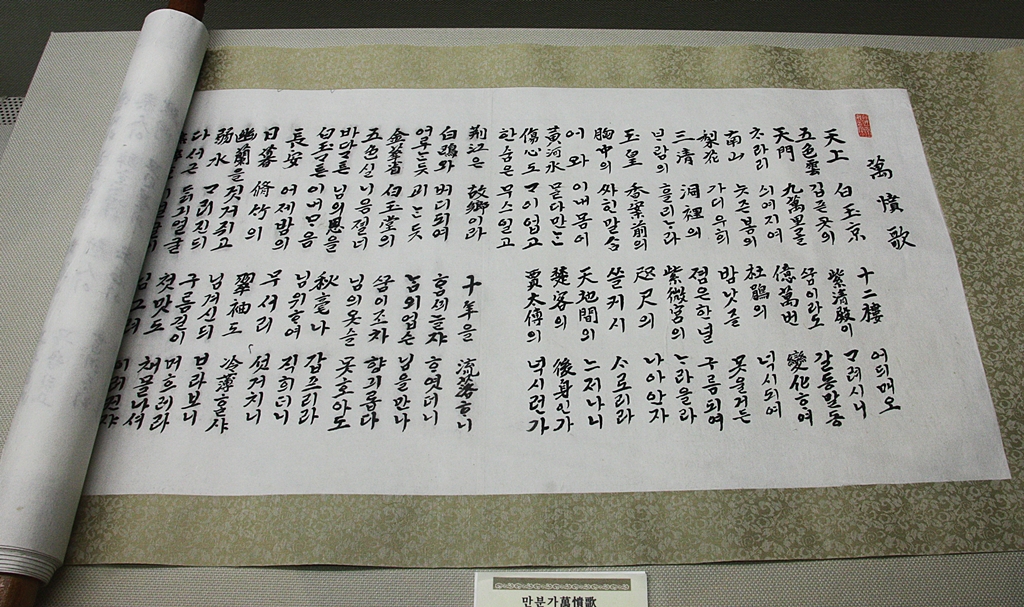 萬憤歌
天上 白玉京 十二樓 어듸매오
五色雲 깁픈 곳의 紫淸殿이 ᄀᆞ려시니
天門 九萬里를 ᄭᅮᆷ이라도 갈동말동
ᄎᆞ라리 싀여지여 億萬번 變化ᄒᆞ여
南山 늣즌 봄의 杜鵑의 넉시 되여
梨花 가디 우희 밤낫즐 못 울거든
三淸 洞裡의 졈은 한널 구름 되여
ᄇᆞ람의 흘리 ᄂᆞ라 紫微宮의 ᄂᆞ라 올라
玉皇 香案前의 咫尺의 나아 안자
胸中의 싸힌 말ᄉᆞᆷ 쓸커시 ᄉᆞ로리라
어와 이내 몸이 天地間의 느저 나니
黃河水 ᄆᆞᆯ다만ᄂᆞᆫ 楚客의 後身인가
傷心도 ᄀᆞ이 업고 賈太傅의 넉시런가
한숨은 무스일고
荊江은 故鄕이라 十年을 流落ᄒᆞ니
白鷗와 버디 되여 ᄒᆞᆷᄭᅴ 놀쟈 ᄒᆞ엿더니
어루ᄂᆞᆫ ᄃᆞᆺ 괴ᄂᆞᆫ ᄃᆞᆺ ᄂᆞᆷ의 업슨 님을 만나
金華省 白玉堂의 ᄭᅮᆷ이조차 향긔롭다
五色실 니음졀너 님의 옷슬 못ᄒᆞ야도
바다 ᄀᆞᄐᆞᆫ 님의 恩을 秋毫나 갑프리라
白玉 ᄀᆞᄐᆞᆫ 이내 ᄆᆞ음 님 위ᄒᆞ여 직희더니
長安 어제 밤의 무서리 섯거치니
日暮 脩竹의 翠袖도 冷薄ᄒᆞᆯ샤
幽蘭을 것거 쥐고 님 겨신 ᄃᆡ ᄇᆞ라보니
弱水 ᄀᆞ리진 ᄃᆡ 구룸길이 머흐레라
다 서근 ᄃᆞᆰ긔 얼굴 첫맛도 채 몰나셔
님 그려 이러컨쟈
만분가萬憤歌